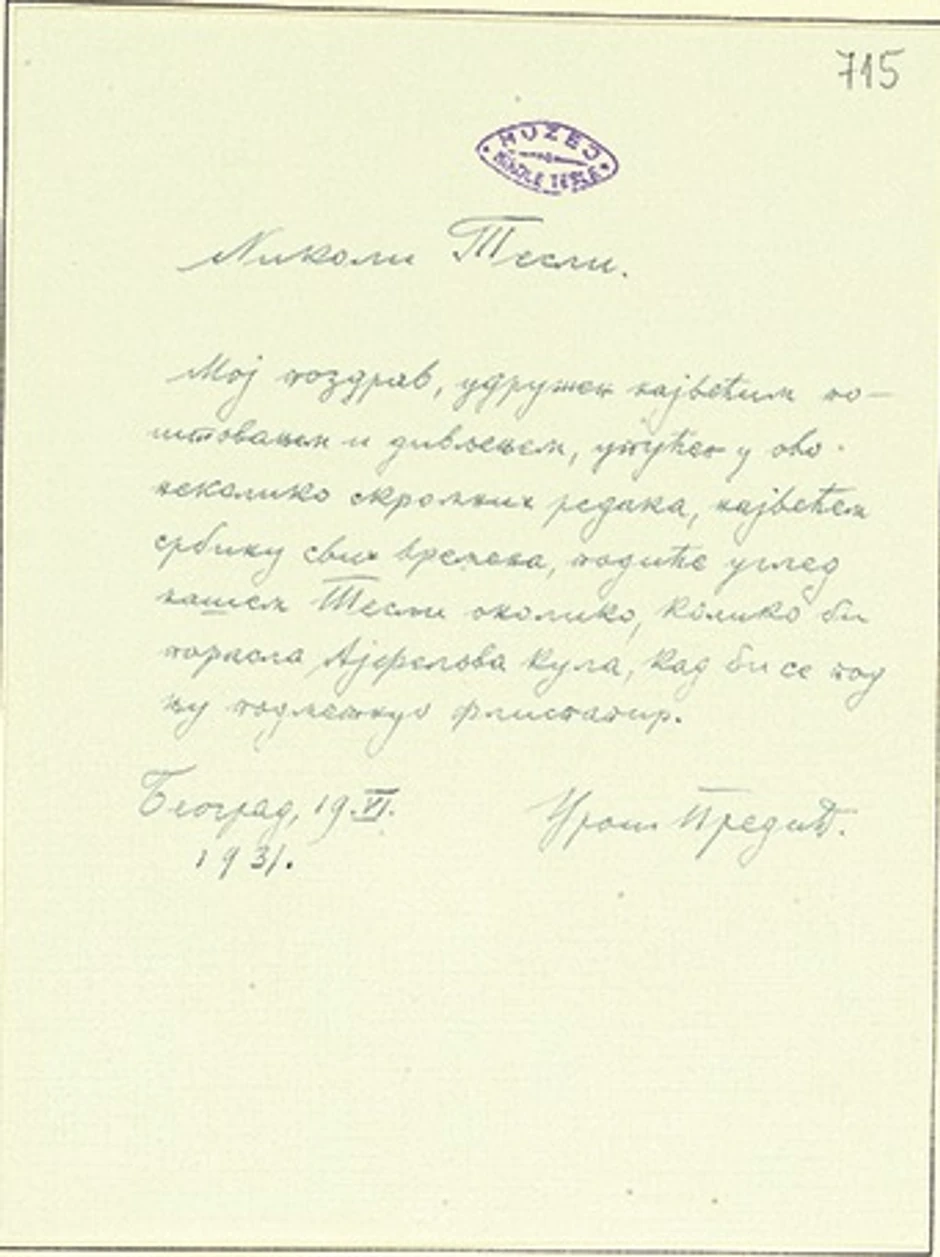 715
MUZEJ
NIKOLE TESLE
Николи Тесли.
Мој поздрав, удружен највећим по-
штовањем и дивљењем, упућен у ово
неколико скромних редака, највећем
србину свих времена, подиће углед
нашем Тесли околико, колико би
порасла Ајфелова кула, кад би се под
њу подметнуо флиспапир.
Београд, 19.VI.
1931.
Урош Предић.